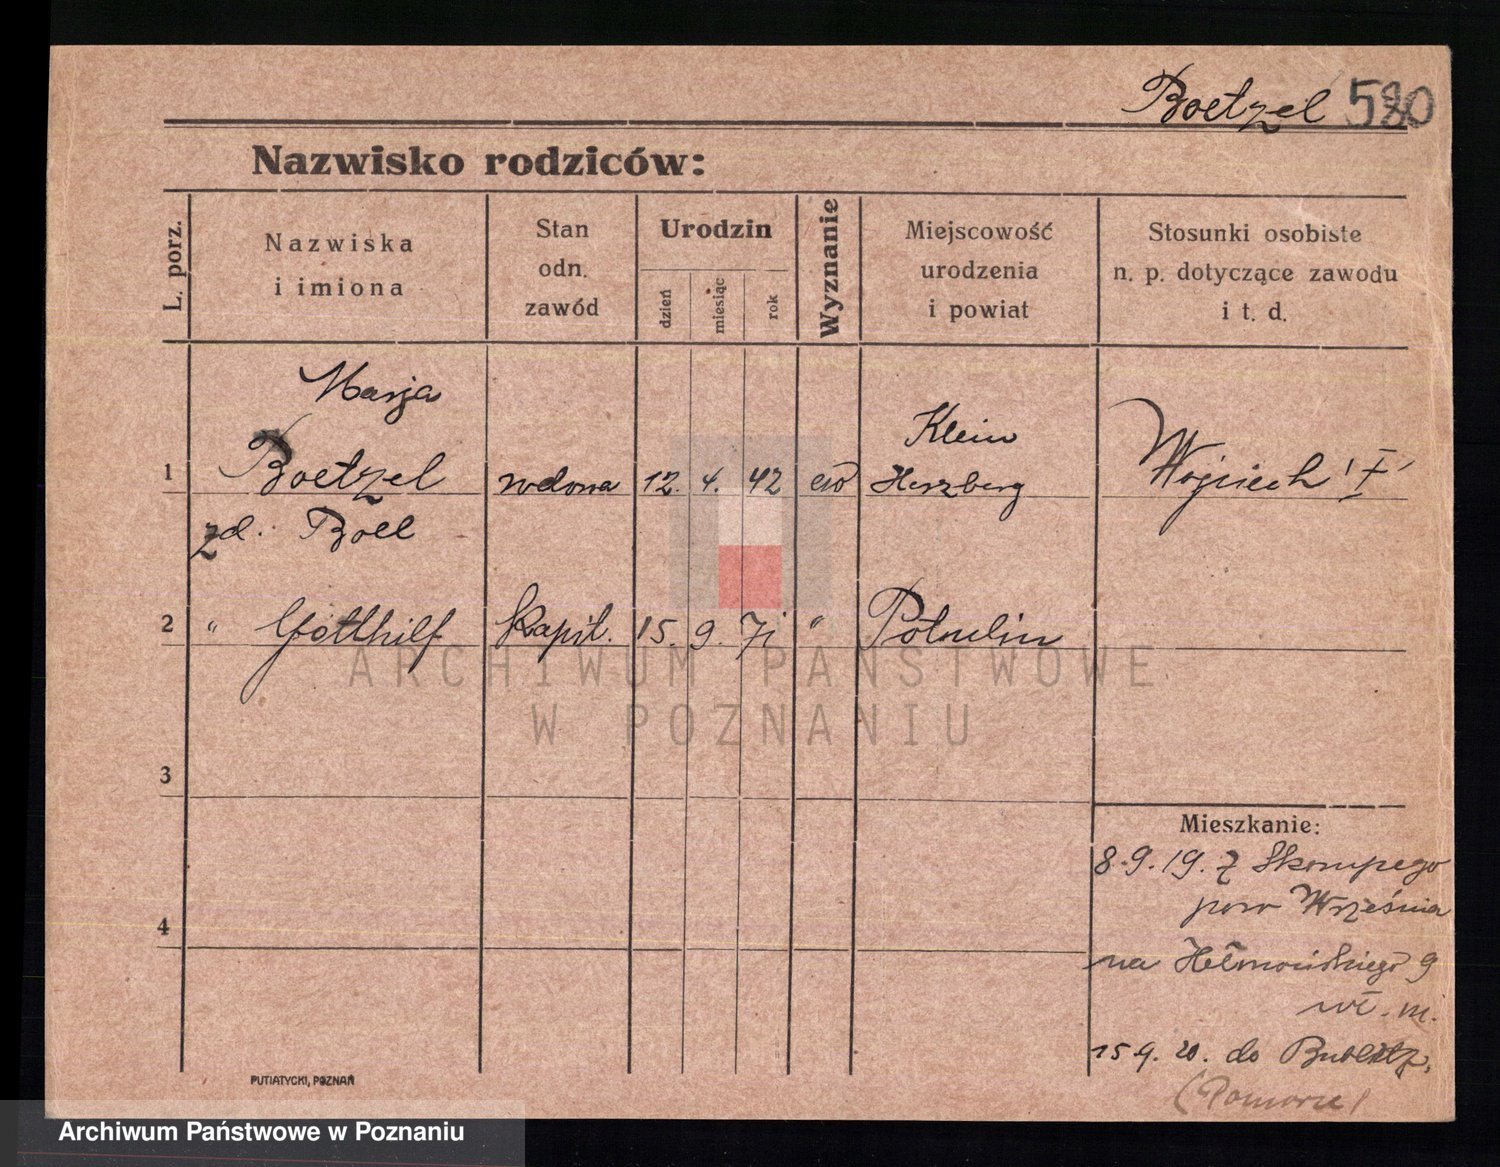 Boetzel 580
Nazwisko rodziców:
L. porz.
Nazwiska
i imiona
Stan
odn.
zawód
Urodzin
dzień
miesiąc
rok
Wyznanie
Miejscowość
urodzenia
i powiat
Stosunki osobiste
n. p. dotyczące zawodu
i t. d.
Marja
Klein
1 Boetzel wdowa 12. 4. 42 ew Herzberg Wojciech I
zd. Boll
2 " Gotthilf kapit. 15. 9. 71 " Potulin
ARCHIWUM PAŃSTWOWE
W POZNANIU
3
Mieszkanie:
8.9.19. z
pow Września
4
na 9
wł. m.
15 9. 20. do Bublitz,
(Pomorze)
PUTIATYCKI, POZNAŃ
Archiwum Państwowe w Poznaniu